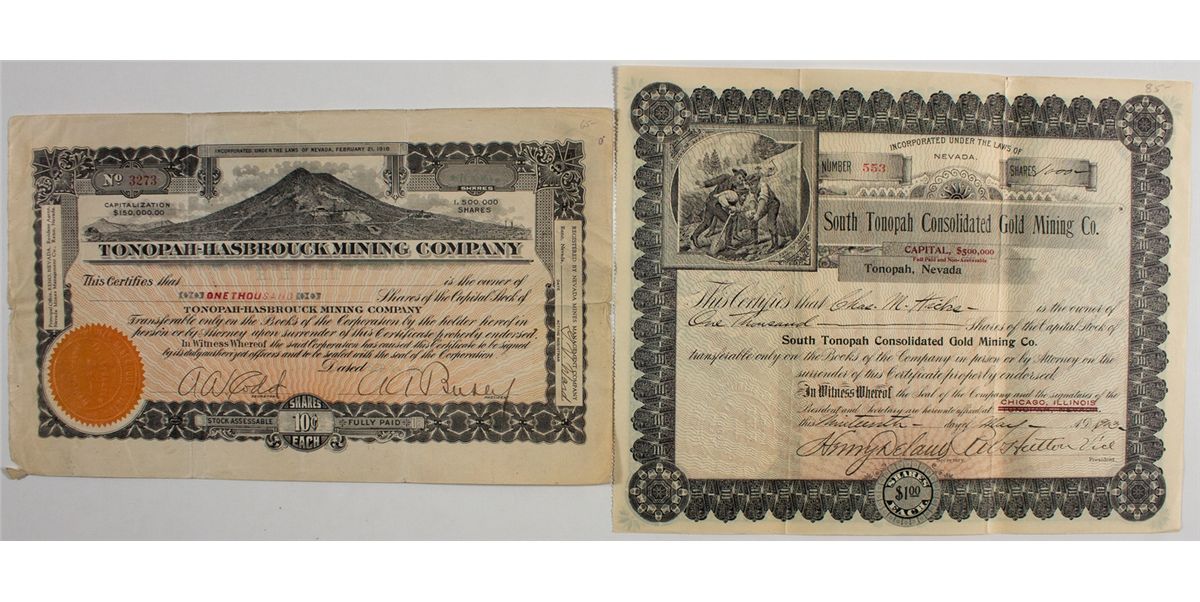 65-
INCORPORATED UNDER THE LAWS OF NEVADA, FEBRUARY 21, 1916
No 3273
SHARES
CAPITALIZATION
$150,000.00
1,500,000
SHARES
TONOPAH-HASBROUCK MINING COMPANY
This Certifies that is the owner of
ONE THOUSAND Shares of the Capital Stock of
TONOPAH-HASBROUCK MINING COMPANY
Transferable only on the Books of the Corporation by the holder hereof in
person or by Attorney upon surrender of this Certificate properly endorsed.
In Witness Whereof the said Corporation has caused this Certificate to be signed
by its duly authorized officers and to be sealed with the seal of the Corporation
Dated
SECRETARY PRESIDENT
STOCK ASSESSABLE
SHARES
10¢
EACH
FULLY PAID
REGISTERED BY NEVADA MINES MANAGEMENT COMPANY
Reno, Nevada
85-
INCORPORATED UNDER THE LAWS OF
NEVADA.
NUMBER 553
SHARES 1000-
South Tonopah Consolidated Gold Mining Co.
CAPITAL, $500,000
Full Paid and Non-Assessable
Tonopah, Nevada
This Certifies that Chas. M. Hicks is the owner of
One Thousand Shares of the Capital Stock of
South Tonopah Consolidated Gold Mining Co.
transferable only on the Books of the Company in person or by Attorney on the
surrender of this Certificate properly endorsed.
In Witness Whereof the Seal of the Company and the signatures of the
President and Secretary are hereunto affixed at CHICAGO, ILLINOIS
this day of May
Vice
Secretary. President.
SHARES
$1.00
EACH